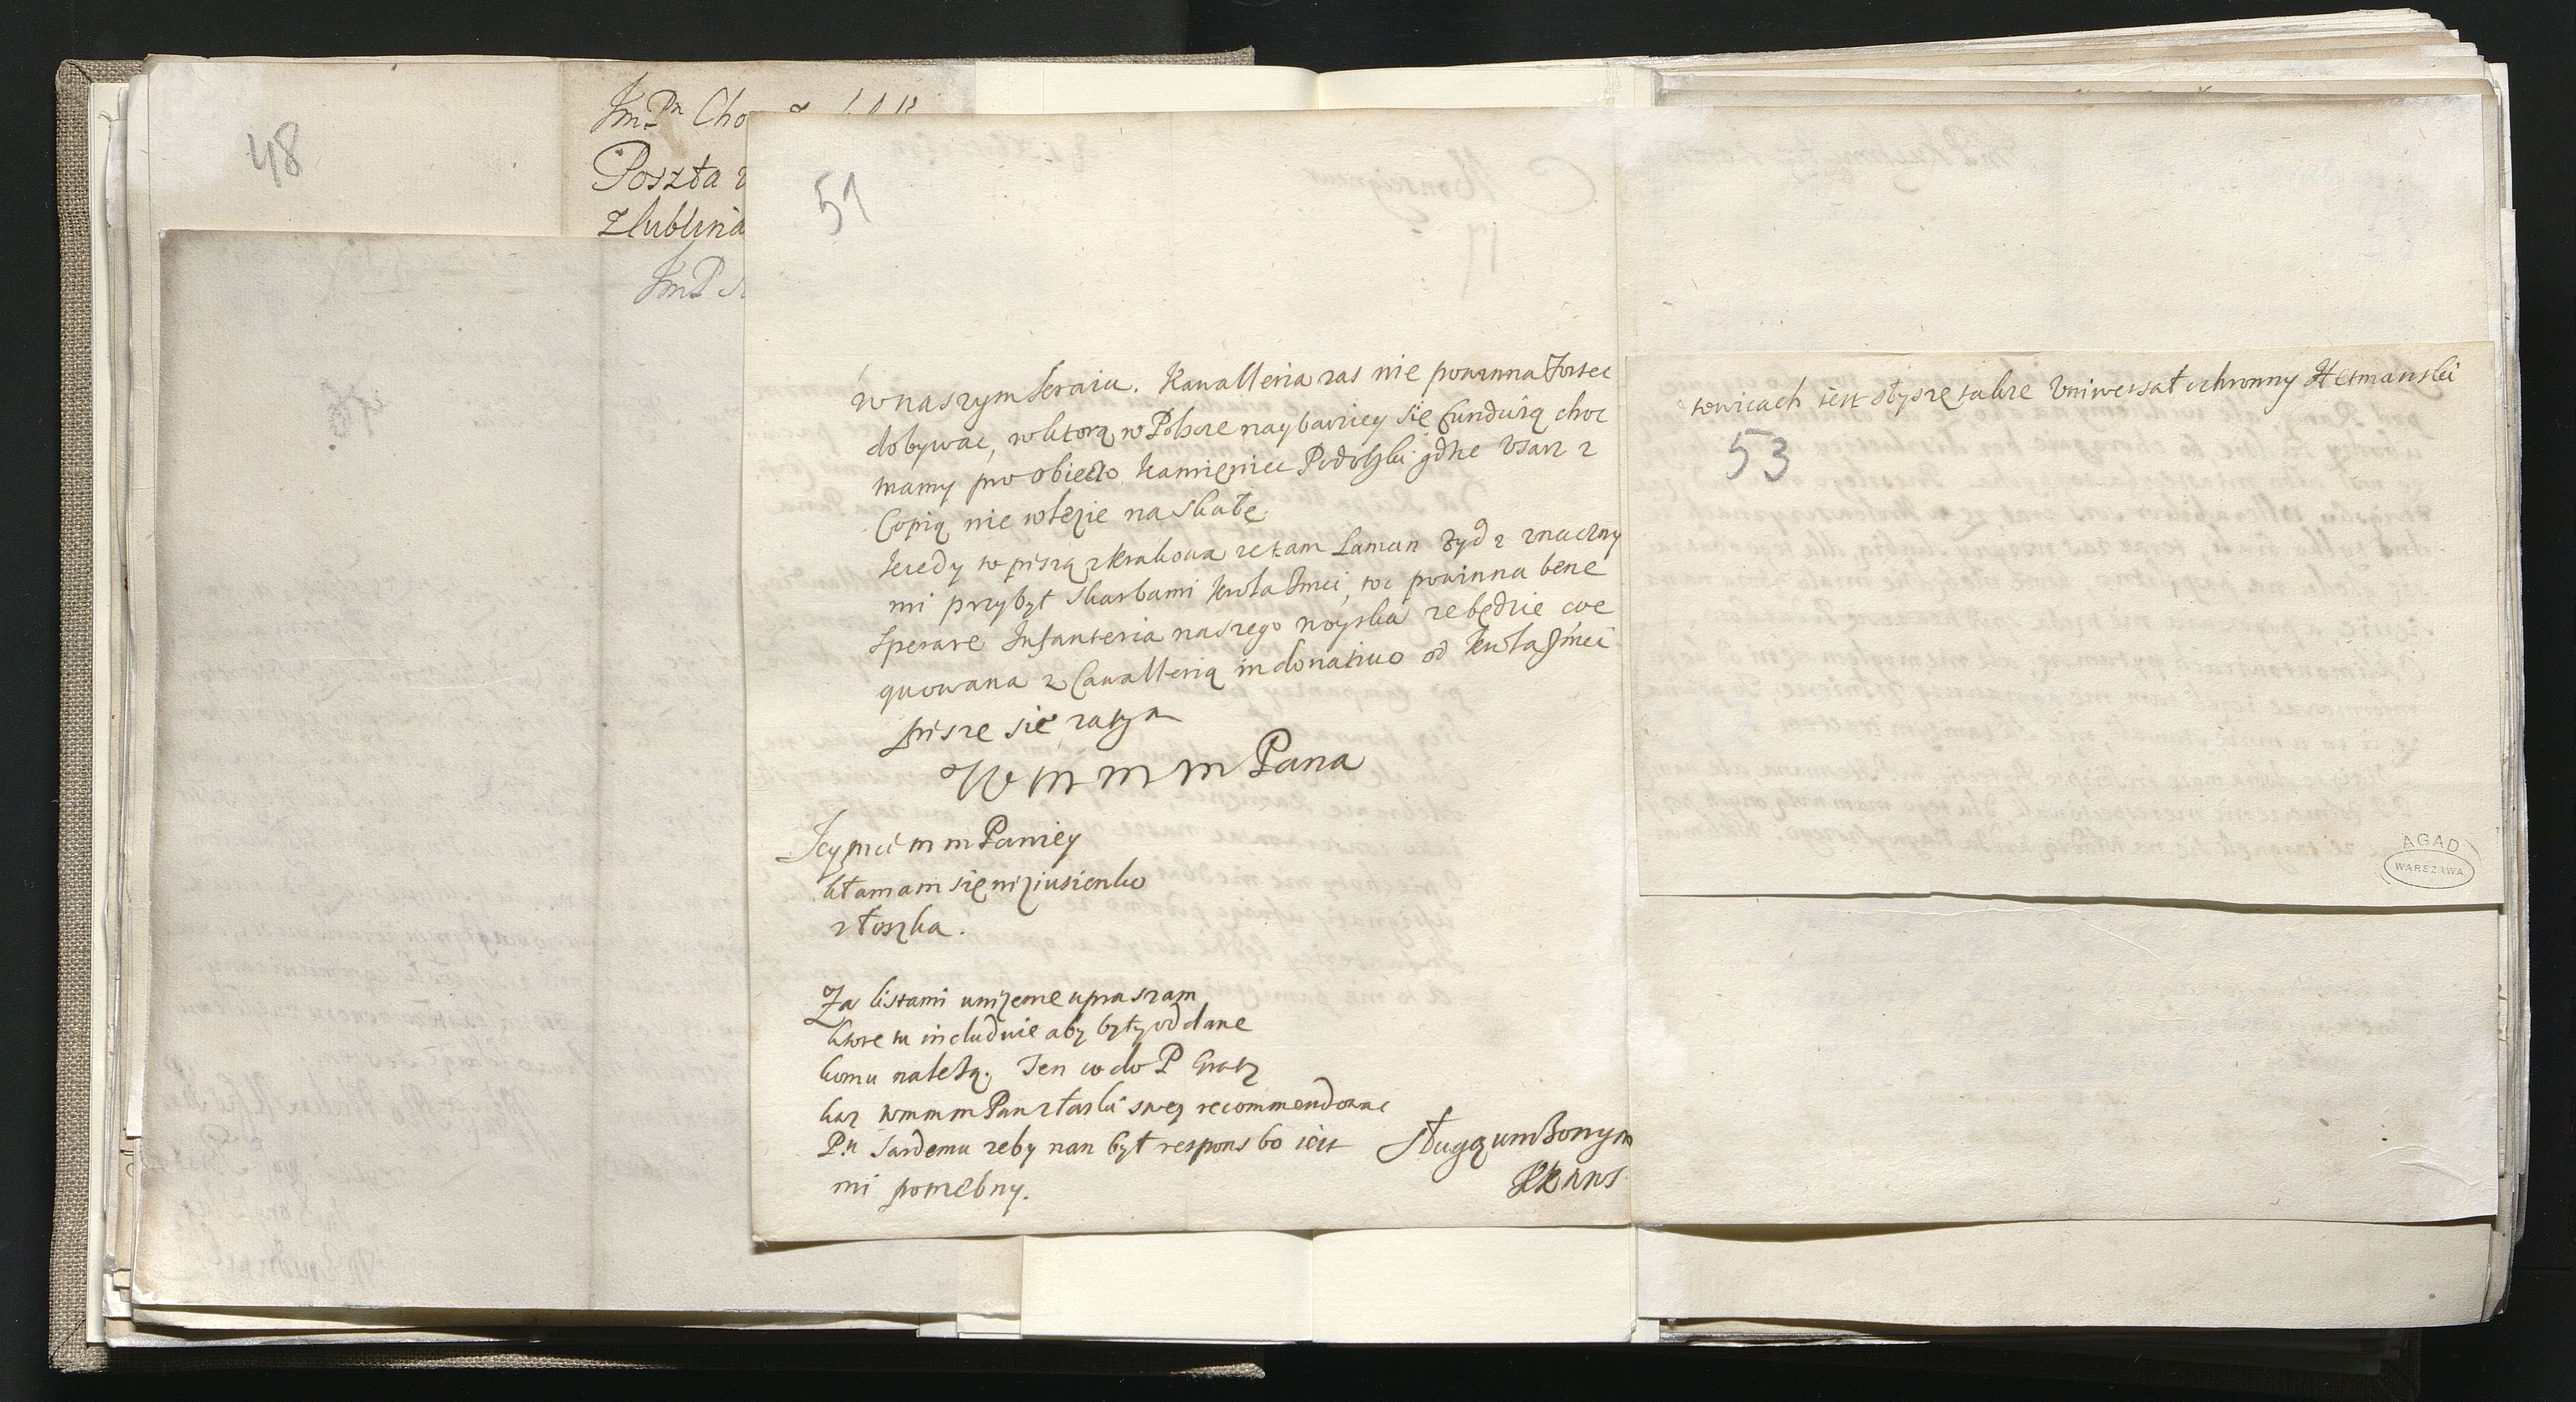 48
Jmp.n Cho
Poszta z
z lublina
JmP
51
w naszym kraiu. Kawalleria zas nie powinna Fortec
dobywac, w ktorą w Polszcze naybarziey się funduią choc
mamy pro obiecto Kamięniec Podolski gdzie Usarz z
Copią nie wlezie na Skałę.
kiedy to piszą z krakowa ze tam Laman Zyd z znaczny
mi przybył skarbami krola Jmci, toc powinna bene
sperare Infanteria naszego woyska ze będzie coe
quowana z Cawallerią in donatiuo od krola Jmci
pisze się zatym
W m m m Pana
Jeymci m m Paniey
kłamam się niziusienko
z łoszka.
Za listami unizenie upraszam
ktore tu includuie aby były oddane
komu nalezą. Ten co do P
kaz wmmm Pan z łaski swey recommendowac
P.n Sardemu zeby nan był respons bo iest
mi potrzebny.
sługą unizonym
towicach iest słyszę takze Uniwersał ochronny Hetmanski
53
AGAD
WARSZAWA